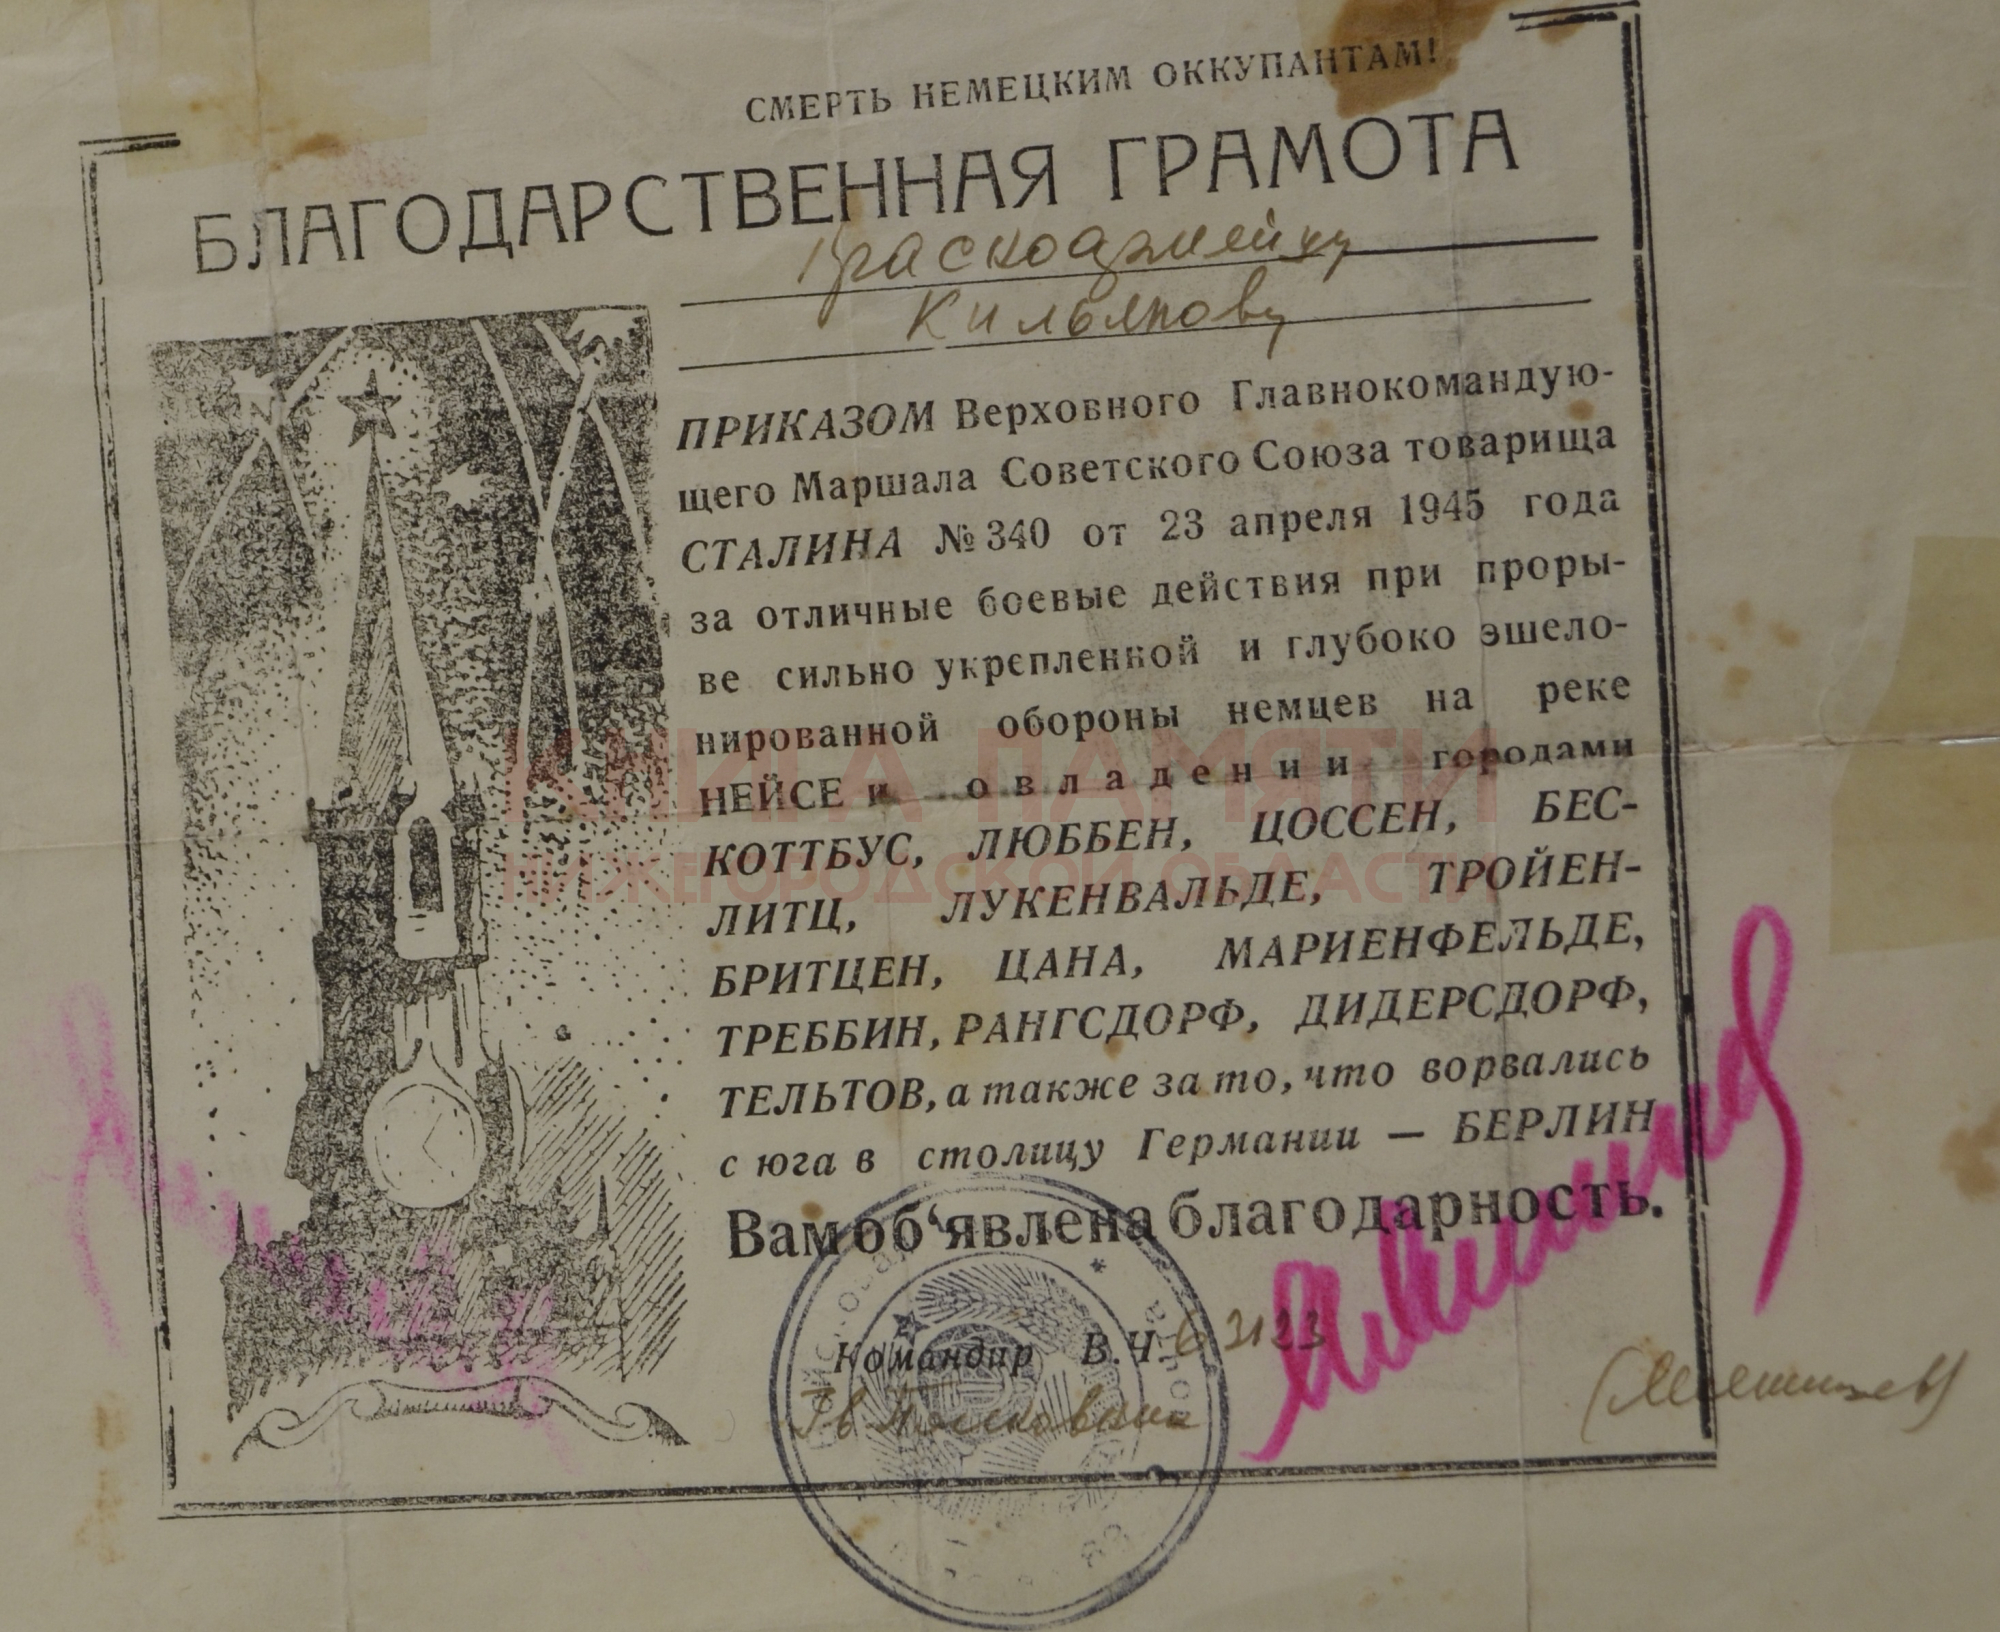 СМЕРТЬ НЕМЕЦКИМ ОККУПАНТАМ!
БЛАГОДАРСТВЕННАЯ ГРАМОТА
Красноармейцу
Кильянову
ПРИКАЗОМ Верховного Главнокомандую-
щего Маршала Советского Союза товарища
СТАЛИНА №340 от 23 апреля 1945 года
за отличные боевые действия при проры-
ве сильно укрепленной и глубоко эшело-
нированной обороны немцев на реке
НЕЙСЕ и овладении городами
КОТТБУС, ЛЮББЕН, ЦОССЕН, БЕС-
ЛИТЦ, ЛУКЕНВАЛЬДЕ, ТРОЙЕН-
БРИТЦЕН, ЦАНА, МАРИЕНФЕЛЬДЕ,
ТРЕББИН, РАНГСДОРФ, ДИДЕРСДОРФ,
ТЕЛЬТОВ, а также за то, что ворвались
с юга в столицу Германии — БЕРЛИН
Вам об‘явлена благодарность.
Командир В.Ч. 63123
КНИГА ПАМЯТИ
НИЖЕГОРОДСКОЙ ОБЛАСТИ